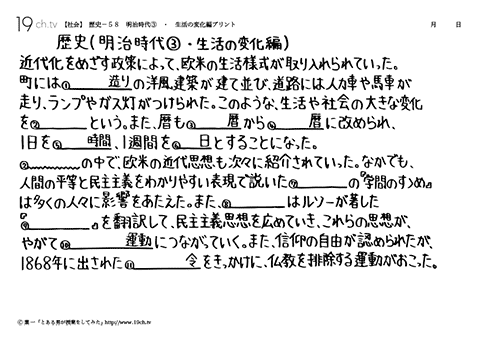 19ch.tv 【社会】 歴史－５８ 明治時代③ ・ 生活の変化編プリント 月 日
歴史(明治時代③・生活の変化編)
近代化をめざす政策によって、欧米の生活様式が取り入れられていった。
町には① 造りの洋風建築が建て並び、道路には人力車や馬車が
走り、ランプやガス灯がつけられた。このような、生活や社会の大きな変化
を② という。また、暦も③ 暦から④ 暦に改められ、
1日を⑤ 時間、1週間を⑥ 日とすることになった。
② の中で、欧米の近代思想も次々に紹介されていった。なかでも、
人間の平等と民主主義をわかりやすい表現で説いた⑦ の『学問のすゝめ』
は多くの人々に影響をあたえた。また、⑧ はルソーが著した
『⑨ 』を翻訳して、民主主義思想を広めていき、これらの思想が、
やがて⑩ 運動につながっていく。また、信仰の自由が認められたが、
1868年に出された⑪ 令をきっかけに、仏教を排除する運動がおこった。
Ⓒ 葉一「とある男が授業をしてみた」http://www.19ch.tv